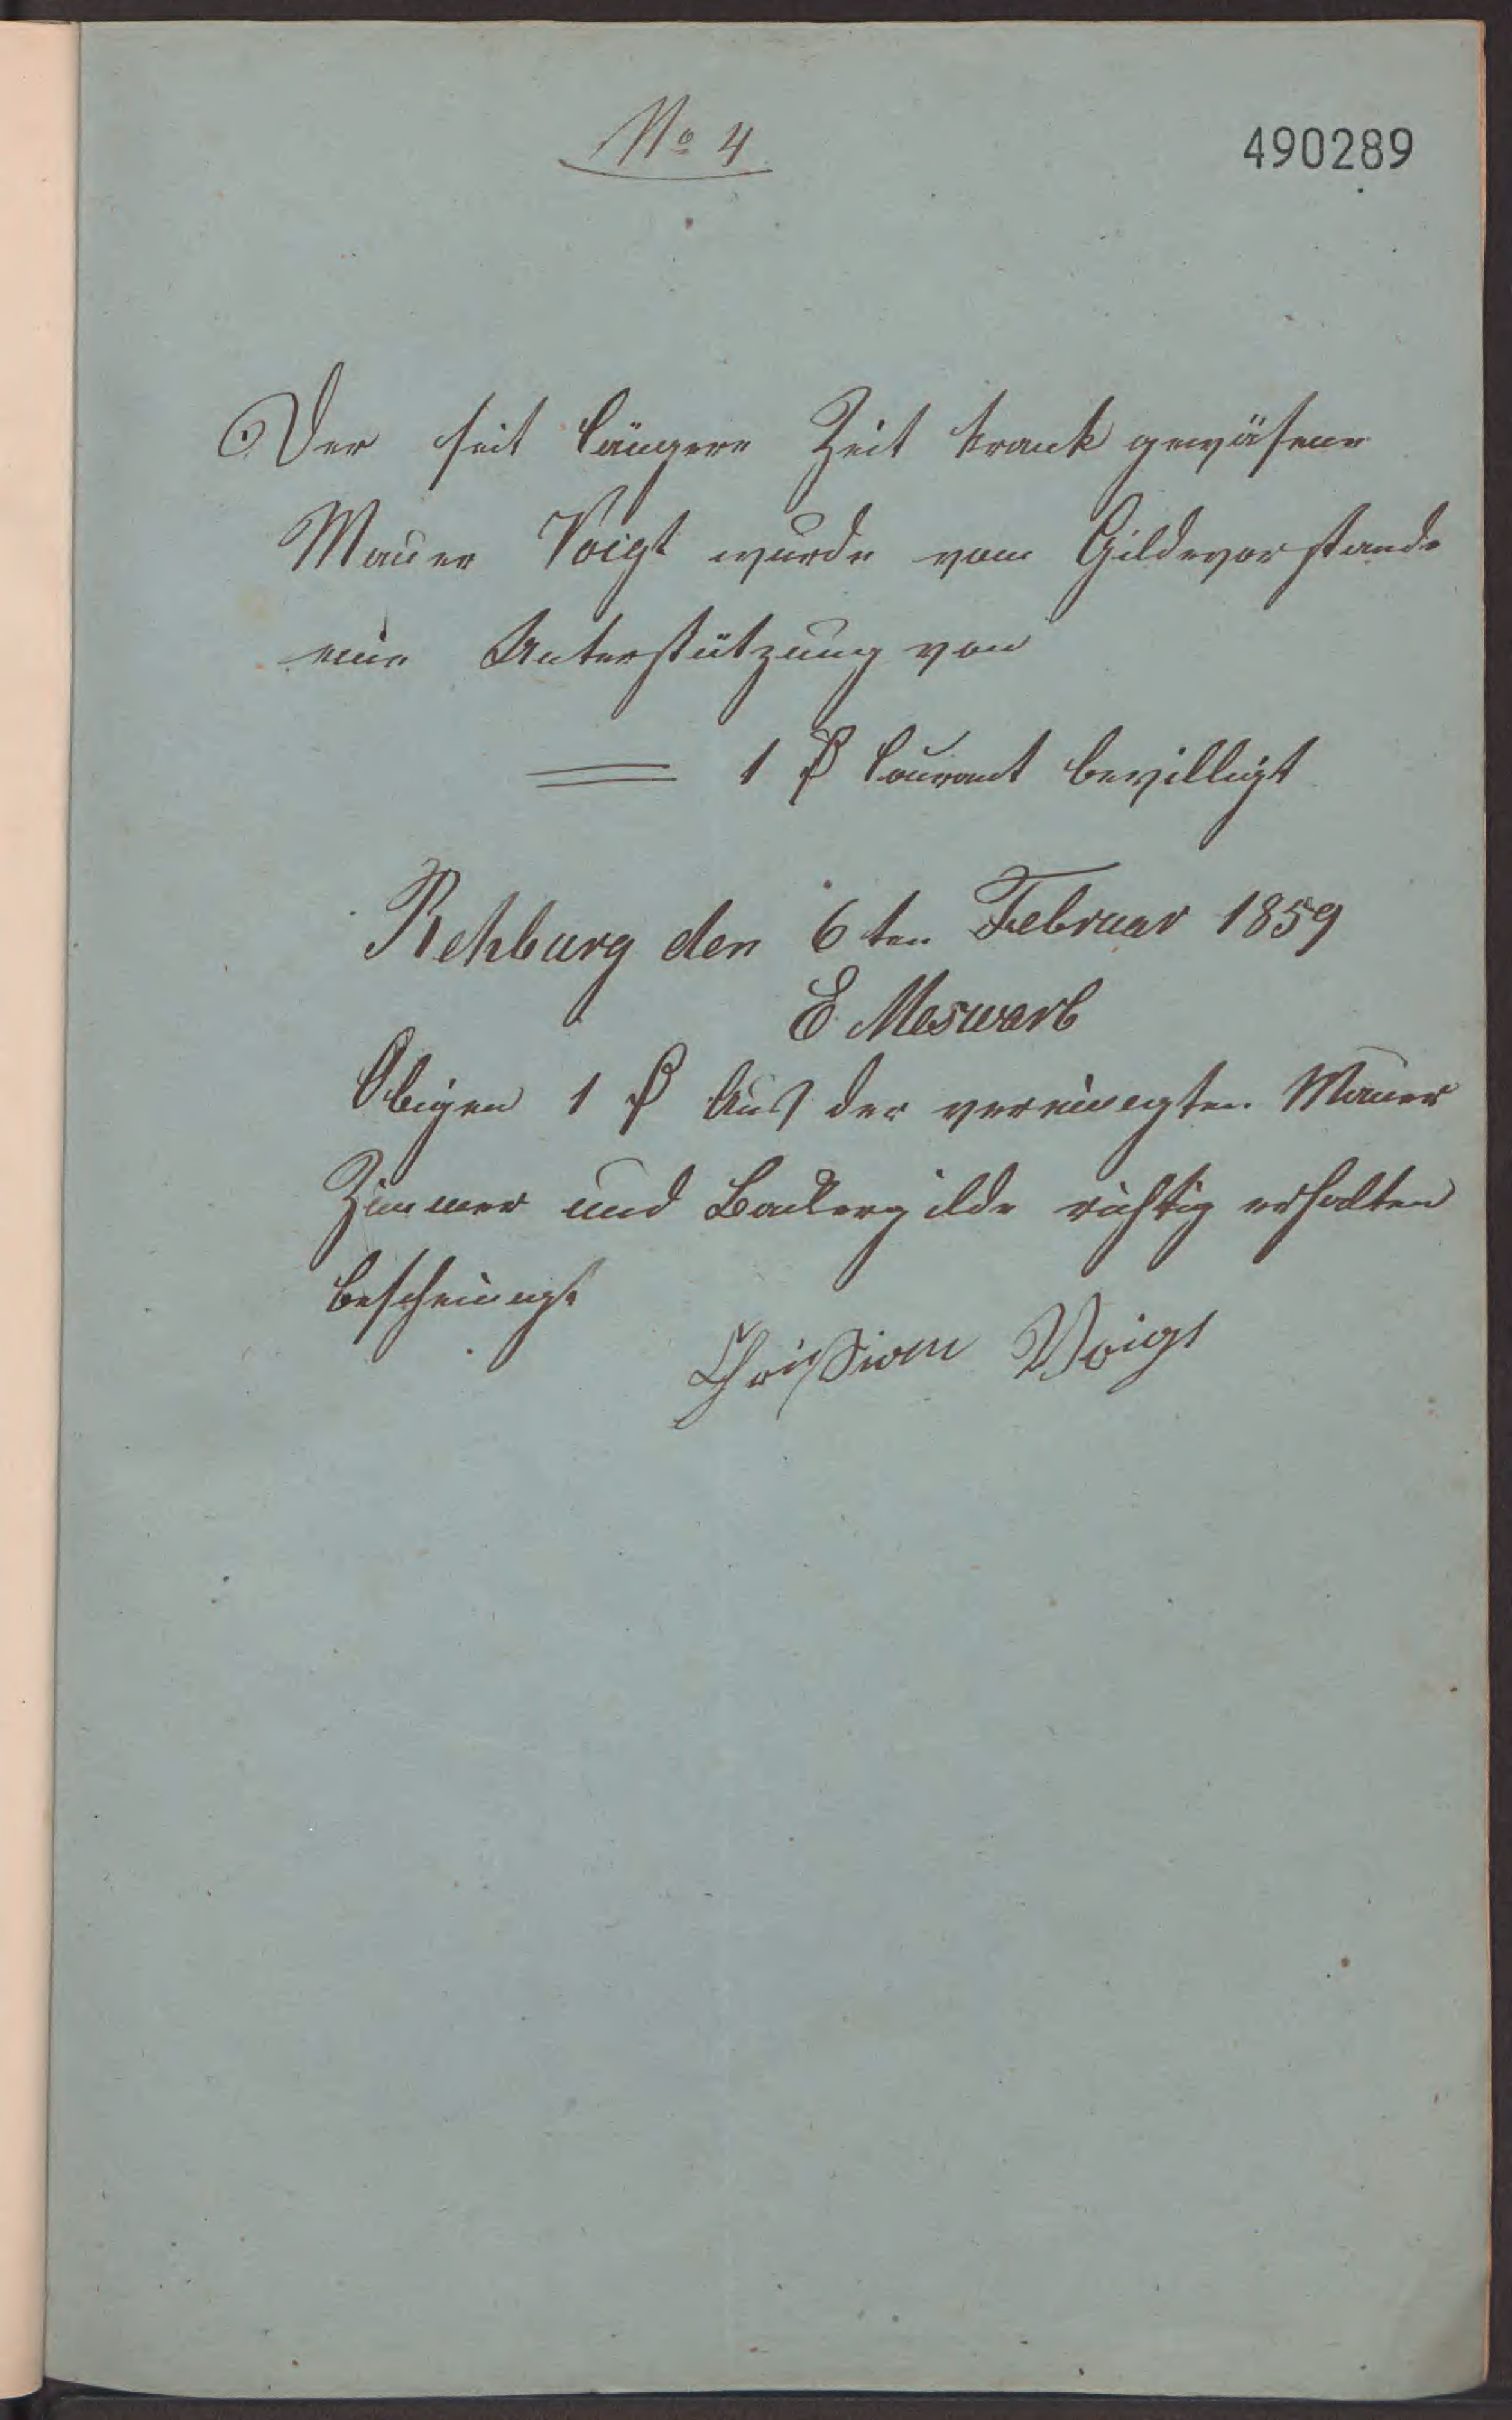 No 4
490289
Der seit längere Zeit krank gewäsene
Mauer Voigt wurde vom Gildevorstande
eine Unterstützung von
= 1 ₰ Courant bewilligt
Rehburg den 6ten Februar 1859
E Meswarb
Obigen 1 ₰ Aus der vereinigten Mauer
Zimmer und Backergilde richtig erhalten
bescheinigt
Christian Voigt